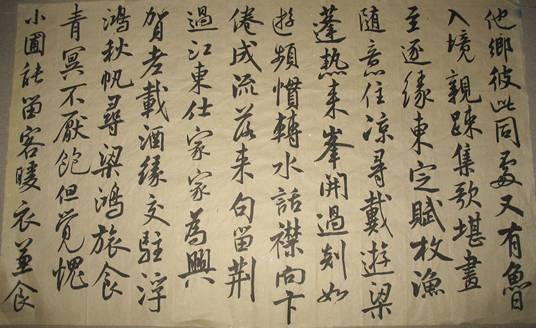 他鄉彼此同處又有魯
入境親疎集歌堪畫
至逐緣東定賦枚漁
隨意住凉尋戴遊梁
蓬熱来峯開過剡如
遊頻慣轉水話襟向卞
倦成流茲来句留荆
過江東仕家家為興
賀老載酒緣交駐浮
鴻秋帆尋梁鴻旅食
青冥不厭飽但覺愧
小團能留客暖衣並食